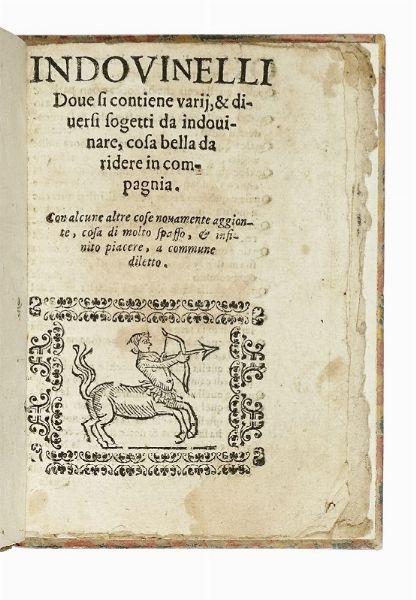 INDOVINELLI
Doue si contiene varij, & di-
uersi sogetti da indoui-
nare, cosa bella da
ridere in com-
pagnia.
Con alcune altre cose nouamente aggion-
te, cosa di molto spasso, & infi-
nito piacere, a commune
diletto.